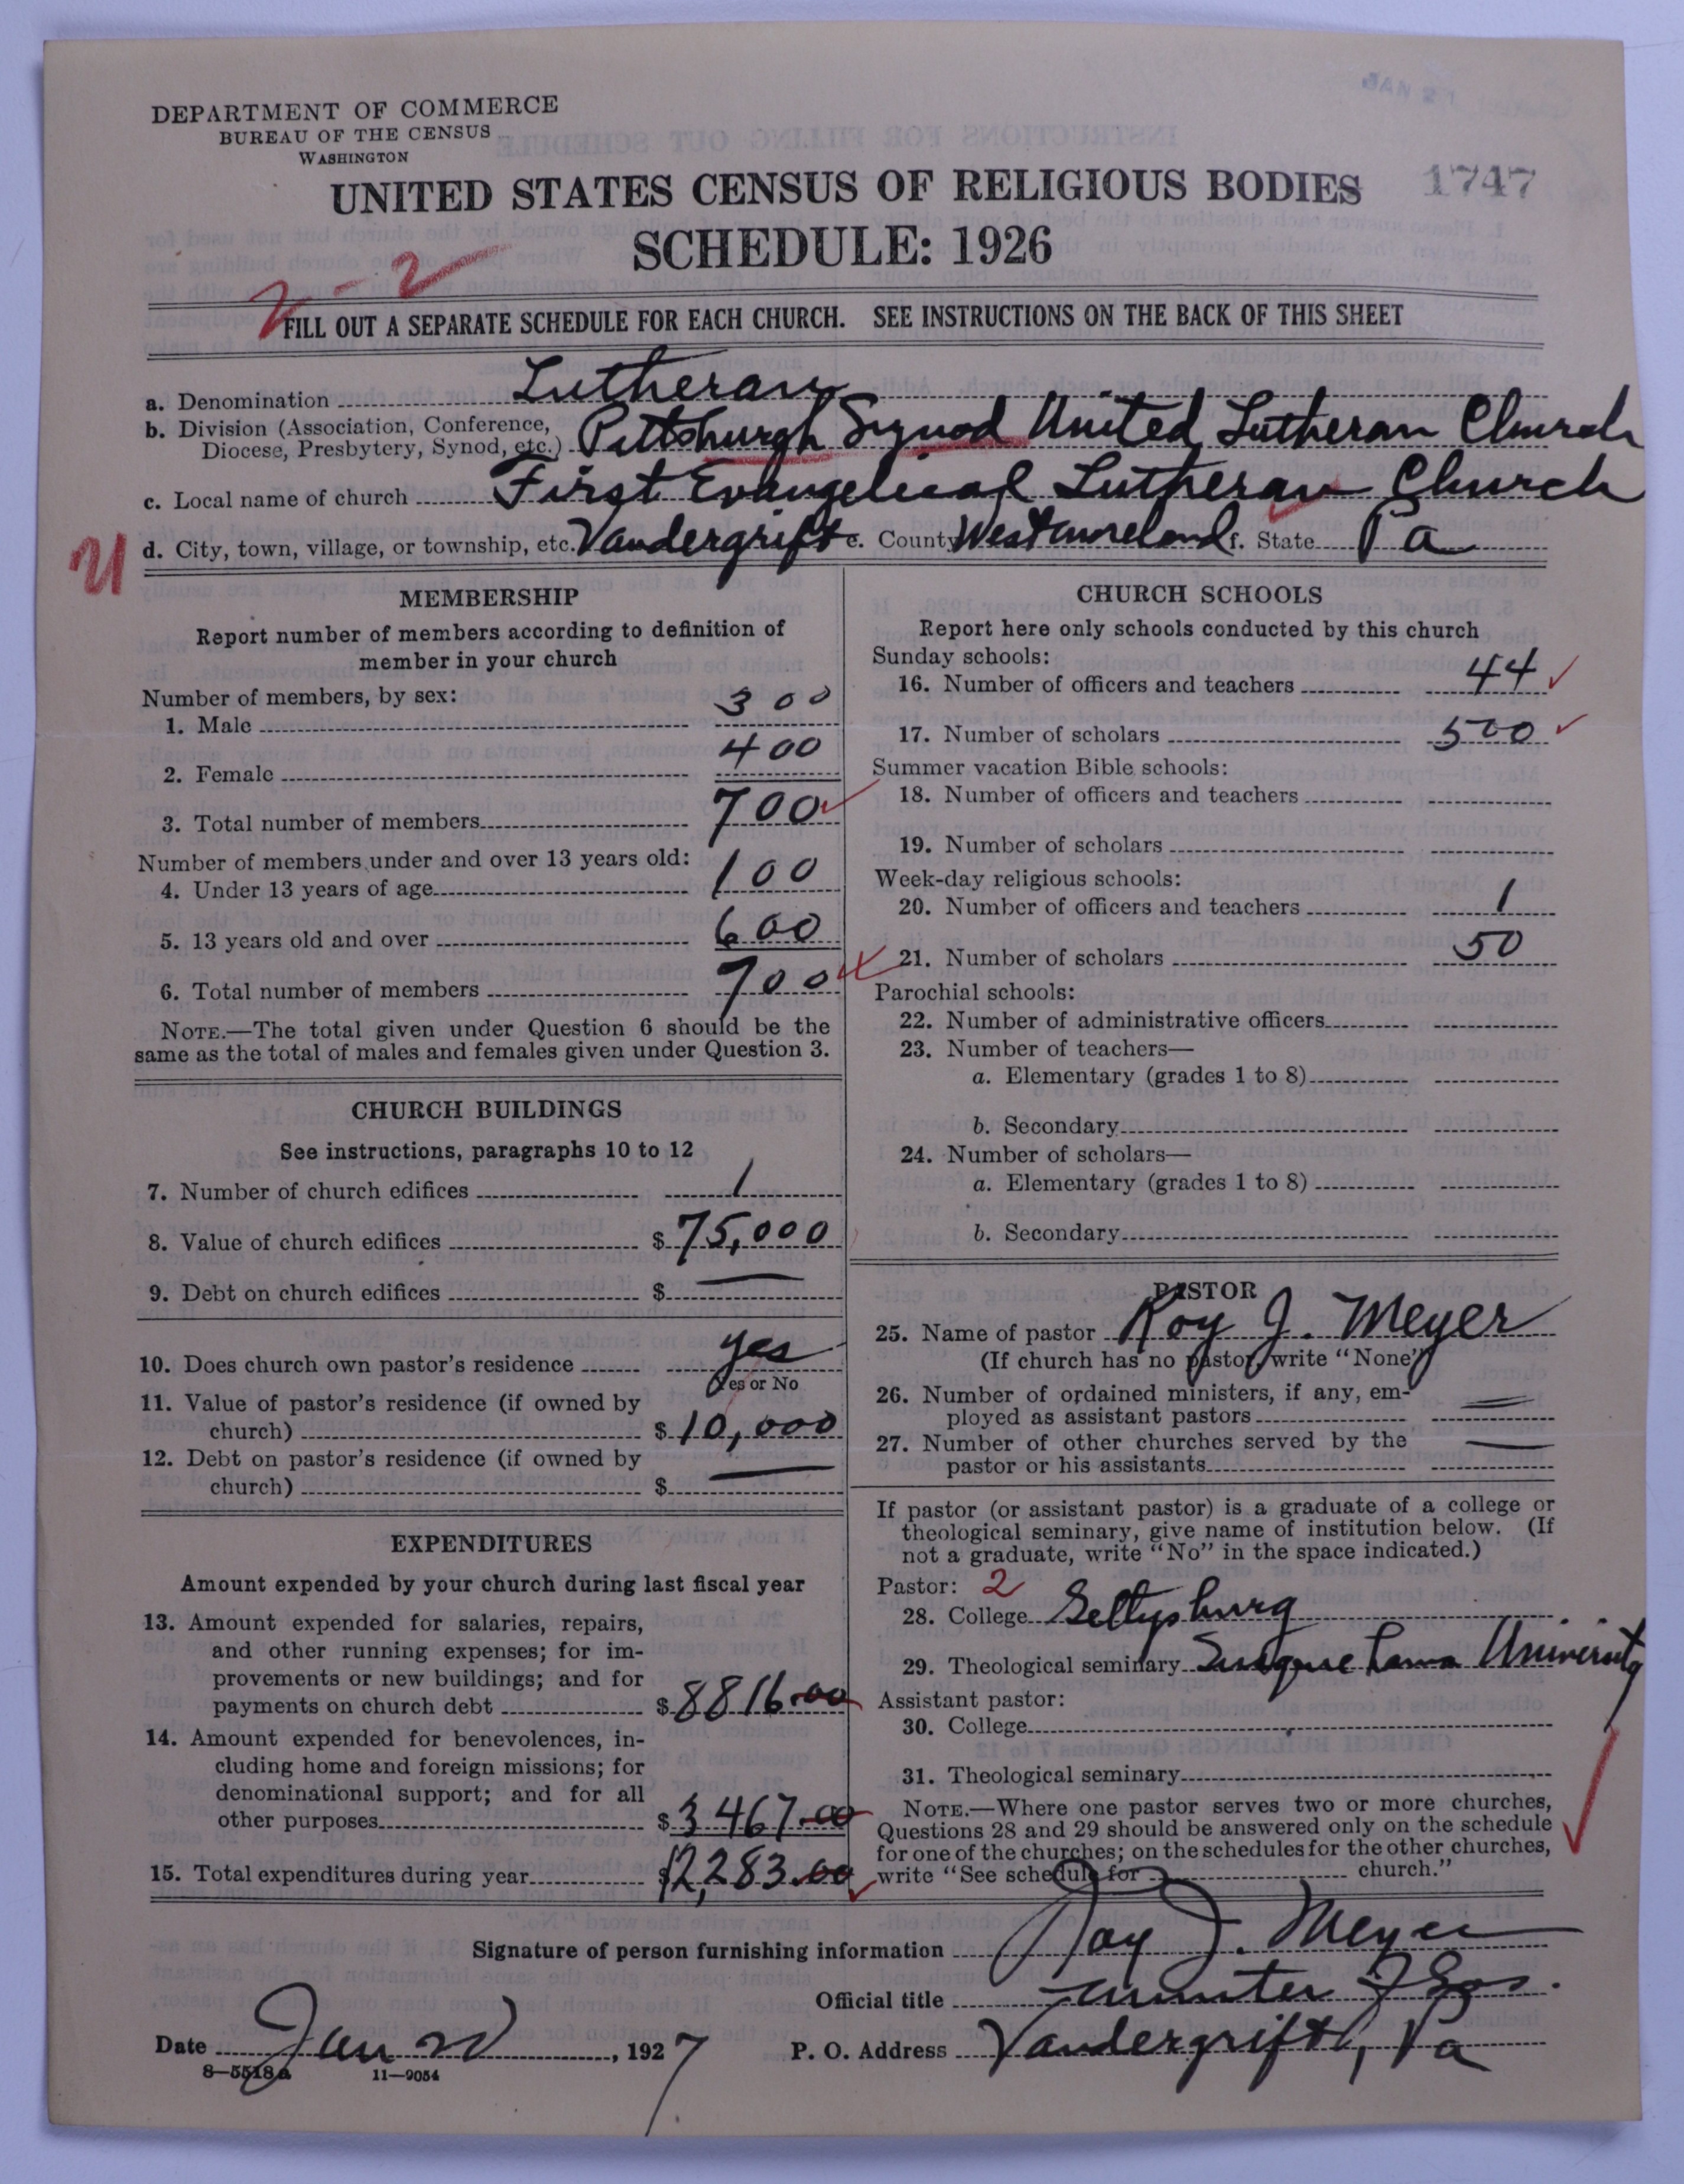 JAN 21
DEPARTMENT OF COMMERCE
BUREAU OF THE CENSUS
WASHINGTON
UNITED STATES CENSUS OF RELIGIOUS BODIES 1747
SCHEDULE: 1926
2-2
FILL OUT A SEPARATE SCHEDULE FOR EACH CHURCH. SEE INSTRUCTIONS ON THE BACK OF THIS SHEET
a. Denomination Lutheran
b. Division (Association, Conference, Diocese, Presbytery, Synod, etc.) Pittsburgh Synod United Lutheran Church
c. Local name of church First Evangelical Lutheran Church
d. City, town, village, or township, etc. Vandergrift e. County Westmoreland f. State Pa
U
MEMBERSHIP
Report number of members according to definition of
member in your church
Number of members, by sex:
1. Male 300
2. Female 400
3. Total number of members 700
Number of members under and over 13 years old:
4. Under 13 years of age 100
5. 13 years old and over 600
6. Total number of members 700
NOTE.—The total given under Question 6 should be the
same as the total of males and females given under Question 3.
CHURCH BUILDINGS
See instructions, paragraphs 10 to 12
7. Number of church edifices 1
8. Value of church edifices $75,000
9. Debt on church edifices $ —
10. Does church own pastor's residence yes
Yes or No
11. Value of pastor's residence (if owned by
church) $10,000
12. Debt on pastor's residence (if owned by
church) $ —
EXPENDITURES
Amount expended by your church during last fiscal year
13. Amount expended for salaries, repairs,
and other running expenses; for im-
provements or new buildings; and for
payments on church debt $8816.00
14. Amount expended for benevolences, in-
cluding home and foreign missions; for
denominational support; and for all
other purposes $3467.00
15. Total expenditures during year $12,283.00
CHURCH SCHOOLS
Report here only schools conducted by this church
Sunday schools:
16. Number of officers and teachers 44
17. Number of scholars 500
Summer vacation Bible schools:
18. Number of officers and teachers
19. Number of scholars
Week-day religious schools:
20. Number of officers and teachers 1
21. Number of scholars 50
Parochial schools:
22. Number of administrative officers
23. Number of teachers—
a. Elementary (grades 1 to 8)
b. Secondary
24. Number of scholars—
a. Elementary (grades 1 to 8)
b. Secondary
PASTOR
25. Name of pastor Roy J. Meyer
(If church has no pastor, write "None")
26. Number of ordained ministers, if any, em-
ployed as assistant pastors —
27. Number of other churches served by the
pastor or his assistants —
If pastor (or assistant pastor) is a graduate of a college or
theological seminary, give name of institution below. (If
not a graduate, write "No" in the space indicated.)
Pastor: 2
28. College Gettysburg
29. Theological seminary Susquehanna University
Assistant pastor:
30. College
31. Theological seminary
NOTE.—Where one pastor serves two or more churches,
Questions 28 and 29 should be answered only on the schedule
for one of the churches; on the schedules for the other churches,
write "See schedule for church."
Signature of person furnishing information Roy J. Meyer
Official title
Date Jan 20, 1927 P. O. Address Vandergrift, Pa
8—5518a 11—9054